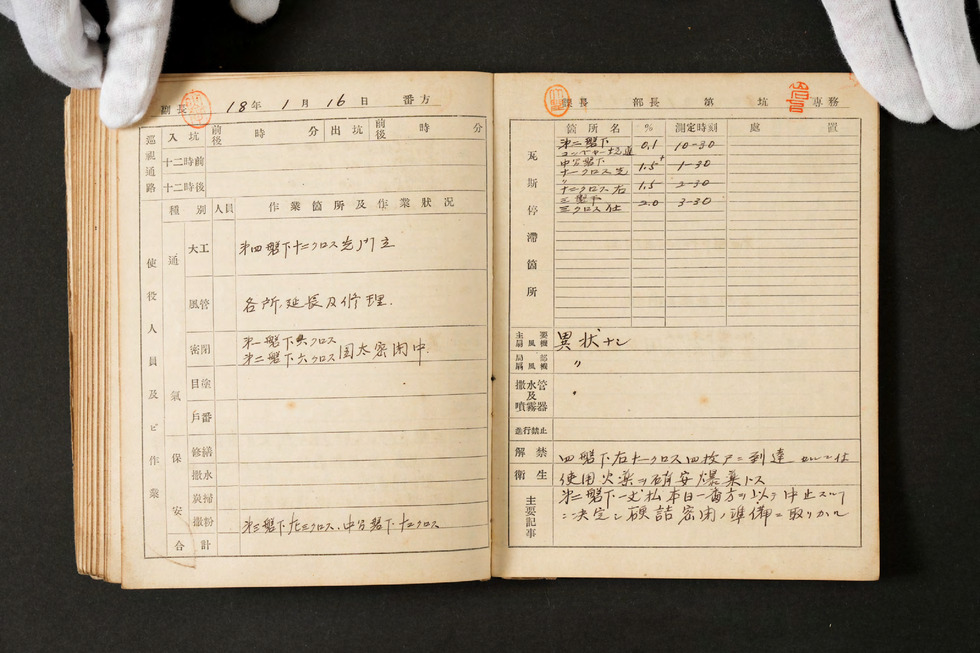 副長 18年 1月 16日 番方
巡視通路 入坑 前後 時 分 出坑 前後 時 分
十二時前
十二時後
使役人員及ビ作業
種別 人員 作業箇所及作業狀況
通氣
大工 第四盤下十二クロス先門立
風管 各所延長及修理.
密閉 第一盤下六クロス
第二盤下六クロス 団太密閉中.
目塗
戶番
保安
修繕
撒水
炭掃
撒粉 第三盤下左三クロス、中字盤下十二クロス
合計
課長 部長 第 坑 専務
瓦斯停滯箇所
箇所名 % 測定時刻 處置
第二盤下 0.1 10-30
中字盤下
十一クロス先 1.5+ 1-30
〃
十二クロス右 1.5 2-30
三盤下
三クロス仕 2.0 3-30
主要扇風機 異狀ナシ
局部扇風機 〃
撒水管及噴霧器
進行禁止
解禁 四盤下右十一クロス四枚戸ニ到達
衛生 使用火薬ハ硝安爆薬トス
主要記事 第二盤下一丈払本日一番方ヲ以テ中止スル
ニ決定シ硬詰密閉ノ準備ニ取リカヽル